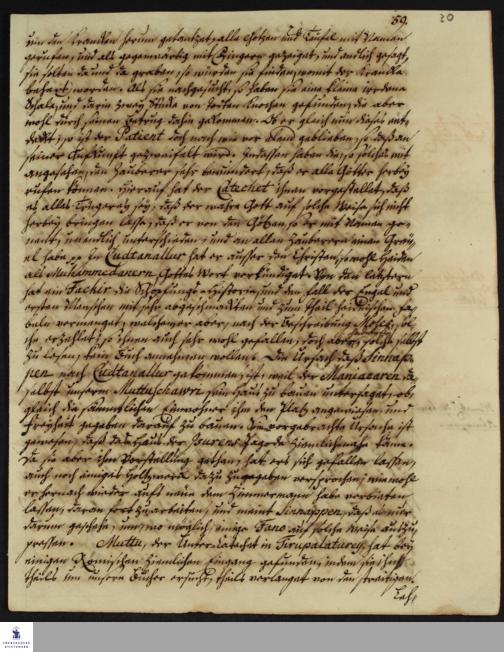 59. 20
um den Krancken herum getantzet, alle Götzen und Teufel mit Namen
gerufen, und als gegenwärtig mit Fingern gezeiget, und endlich gesagt,
sie solten da und da graben, so würden sie finden, womit der Krancke
behext worden. Als sie nachgesucht, so haben sie eine kleine irdene
Schale, und darin zwey Stücke von todten Knochen gefunden, die aber
wohl durch seinen Betrug dahin gekommen. Ob er gleich nun dieses ent-
deckt, so ist der Patient doch nach wie vor elend geblieben, so daß an
seiner Aufkunft gezweifelt wird. Indessen haben die, so solches mit
angesehen, den Zauberer sehr bewundert, daß er alle Götter herbey
rufen können. Hierauf hat der Catechet ihnen vorgestellet, daß
es alles Triegerey sey, daß der wahre Gott auf solche Weise sich nicht
herbey bringen lasse, daß er von den Götzen, so er mit Namen ge-
nent, unendlich unterschieden, und an allen Zauberern einen Greu-
el habe. In Cudtanallur hat er ausser den Christen, sowohl Heiden
als Muhammedanern Gottes Wort verkündiget. Von den letztern
hat ein Fackir die Schöpfungs-Historie, und den Fall der Engel und
ersten Menschen mit sehr abgeschmackten und zum Theil heidnischen Fa-
beln vermenget, welchem er aber, nach der Beschreibung Mosis, sol-
che erzehlet, so ihnen auch sehr wohl gefallen, doch aber, solche selbst
zu lesen, kein Buch annehmen wollen. Die Ursach daß Sinnap-
pen nach Cudtanallur gekommen, ist, weil der Maniacaren da-
selbst unserm Muttuschawri sein Haus zu bauen untersaget, ob-
gleich die sämmtlichen Einwohner ihm den Platz angewiesen, und
Freyheit gegeben darauf zu bauen. Die vorgebrachte Ursache ist
gewesen, daß das Haus der Pagode ziemlich nahe käme.
Da sie aber ihm Vorstellung gethan, hat er es sich gefallen lassen,
auch noch einiges Holtzwerck dazu zugegeben versprochen, wiewohl
er hernach wieder aufs neue dem Zimmermann habe verbieten
lassen, daran fort zu arbeiten, und meint Sinnappen, daß es nur
darum geschehe, um, wo möglich, einige Fano auf solche Weise auszu-
pressen. Muttu, der Unter-Catechet in Tirupalaturey, hat bey
einigen Römischen ziemlichen Eingang gefunden, indem sie sich
theils um unsere Bücher ersucht, theils verlanget von den streitigen
Leh-
FRANCKESCHE STIFTUNGEN